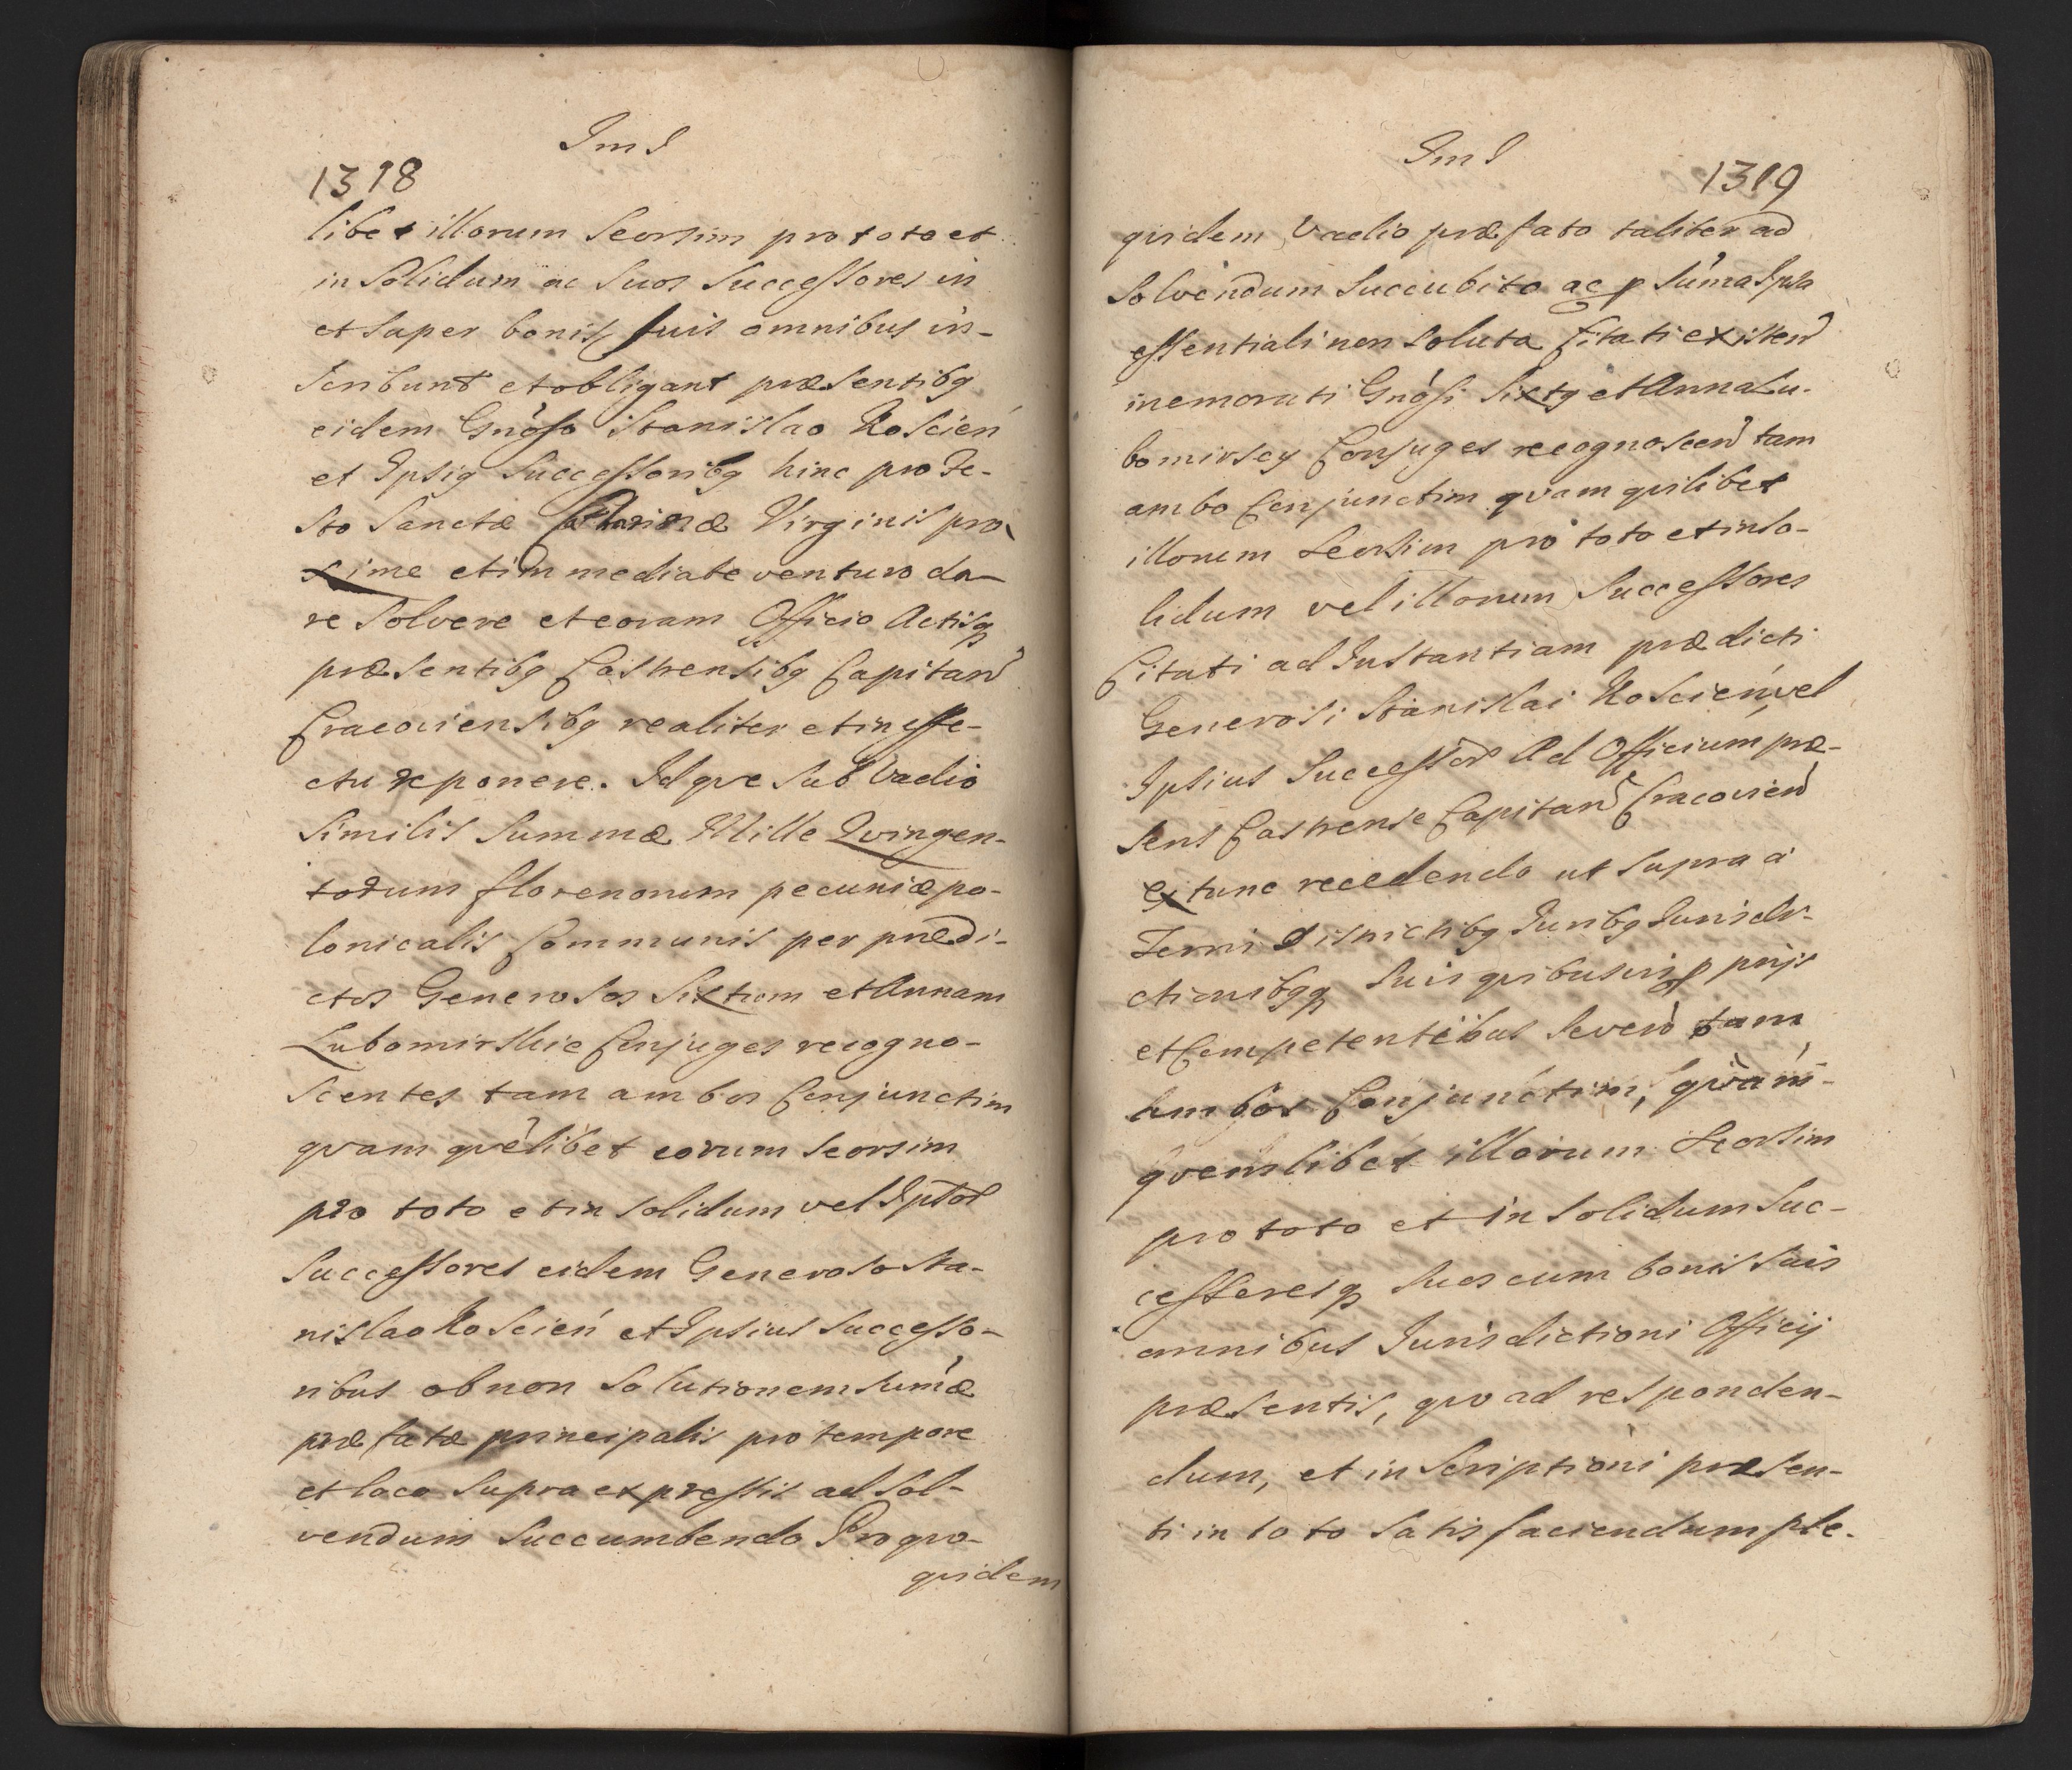 JmJ
1318
libet illorum Seorsim pro toto et
in Solidum ac Suos Successores in
et Super bonis suis omnibus in-
scribunt et obligant præsentibq
eidem Gnoso Stanislao Koscień
et Ipsiq Successoribq hinc pro Fe-
sto Sanctæ Virginis pro-
xime et immediate venturo da-
re Solvere et coram Officio Actisq
præsentibq Castrensibq Capitan
Cracoviensibq realiter et in effe-
ctu reponere. Idqve Sub Vadio
Similis Summæ Mille Qvingen-
torum florenorum pecuniæ po-
lonicalis Communis per prædi-
ctos Generosos Sixtum et Annam
Lubomirskie Conjuges recogno-
scentes tam ambos Conjunctim
qvam qvelibet eorum Seorsim
pro toto et in Solidum vel Ipsor
Successores eidem Generoso Sta-
nislao Koscień et Ipsius Successo-
ribus ob non Solutionem Sumæ
præfatæ principalis pro tempore
et loco Supra expressis ad Sol-
vendum Succumbendo Pro qvo-
qvidem
JmJ
1319
qvidem Vadio præfato taliter ad
Solvendum Succubito ac p Suma Ipsa
essentiali non Soluta Citati existen
memorati Gnosi Sixtq et Anna Lu-
bomirscy Conjuges recognoscen tam
ambo Conjunctim qvam qvilibet
illorum Seorsim pro toto et in So-
lidum vel illorum Successores
Citati ad Instantiam prædicti
Generosi Stanislai Koscień, vel
Ipsius Successor Ad Officium, præ-
sens Castrense Capitan Cracovien
Ex tunc recedendo ut Supra a
Terris Districtibq Juribq Jurisdi-
ctionibqq Suis qvibusvis pprijs
et Competentibus Severo tam
ambos Conjunctim, qvam-
qvemlibet illorum Seorsim
pro toto et in Solidum Suc-
cessoresq Suos cum bonis Suis
omnibus Jurisdictioni Officij
præsentis, qvo ad responden-
dum, et inScriptioni præsen-
ti in toto Satis faciendum ple-